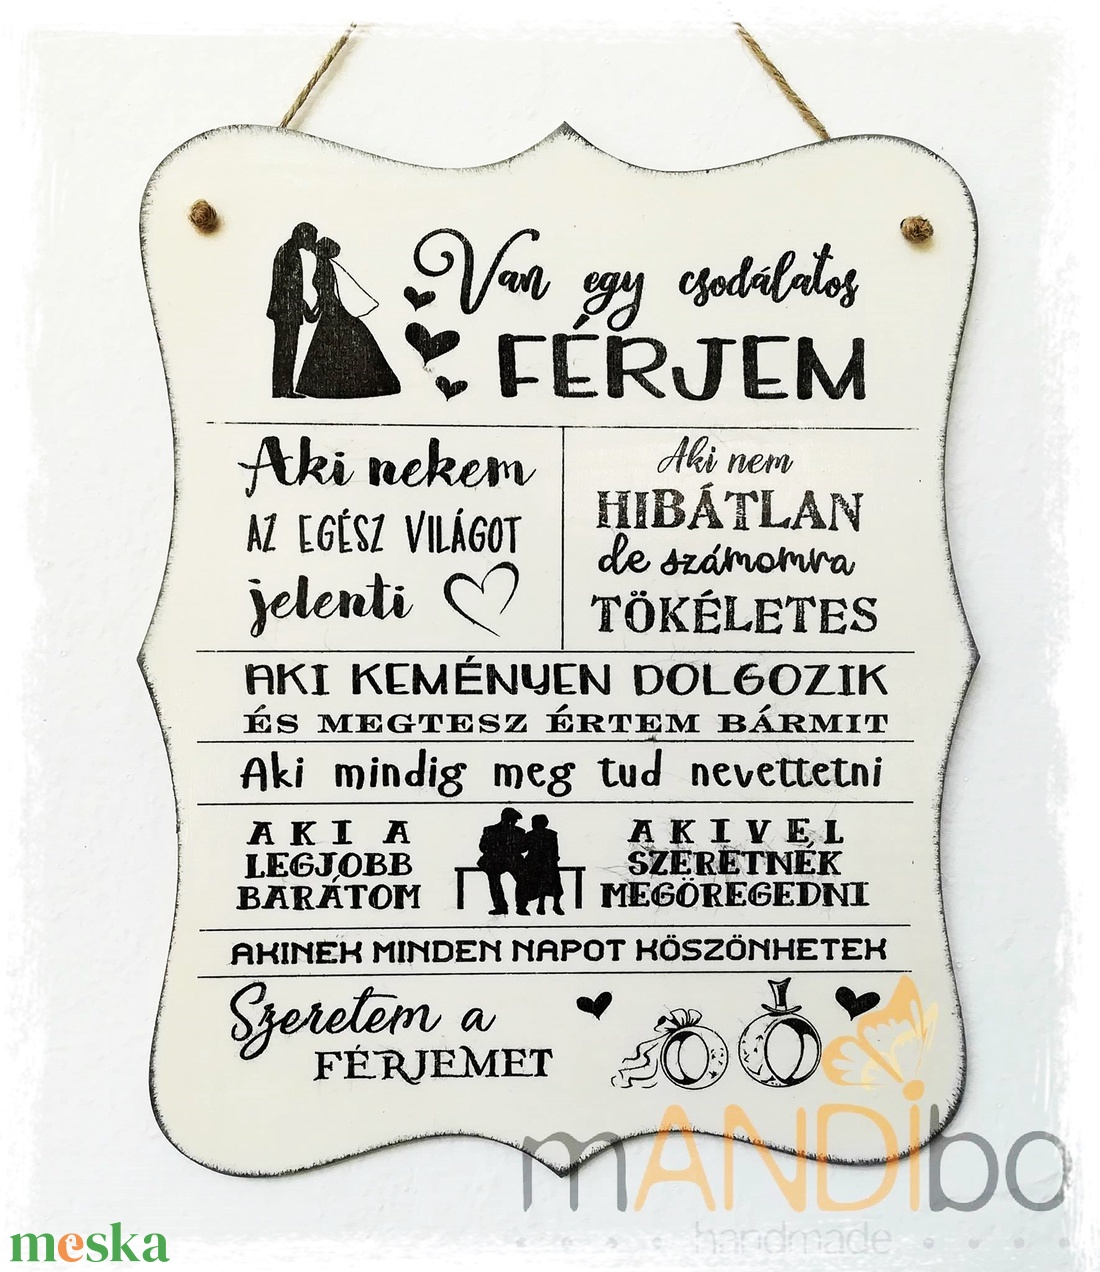 Van egy csodálatos
FÉRJEM
Aki nekem
AZ EGÉSZ VILÁGOT
jelenti
Aki nem
HIBÁTLAN
de számomra
TÖKÉLETES
AKI KEMÉNYEN DOLGOZIK
ÉS MEGTESZ ÉRTEM BÁRMIT
Aki mindig meg tud nevettetni
AKI A
LEGJOBB
BARÁTOM
AKIVEL
SZERETNÉK
MEGÖREGEDNI
AKINEK MINDEN NAPOT KÖSZÖNHETEK
Szeretem a
FÉRJEMET
mANDibo
handmade
meska